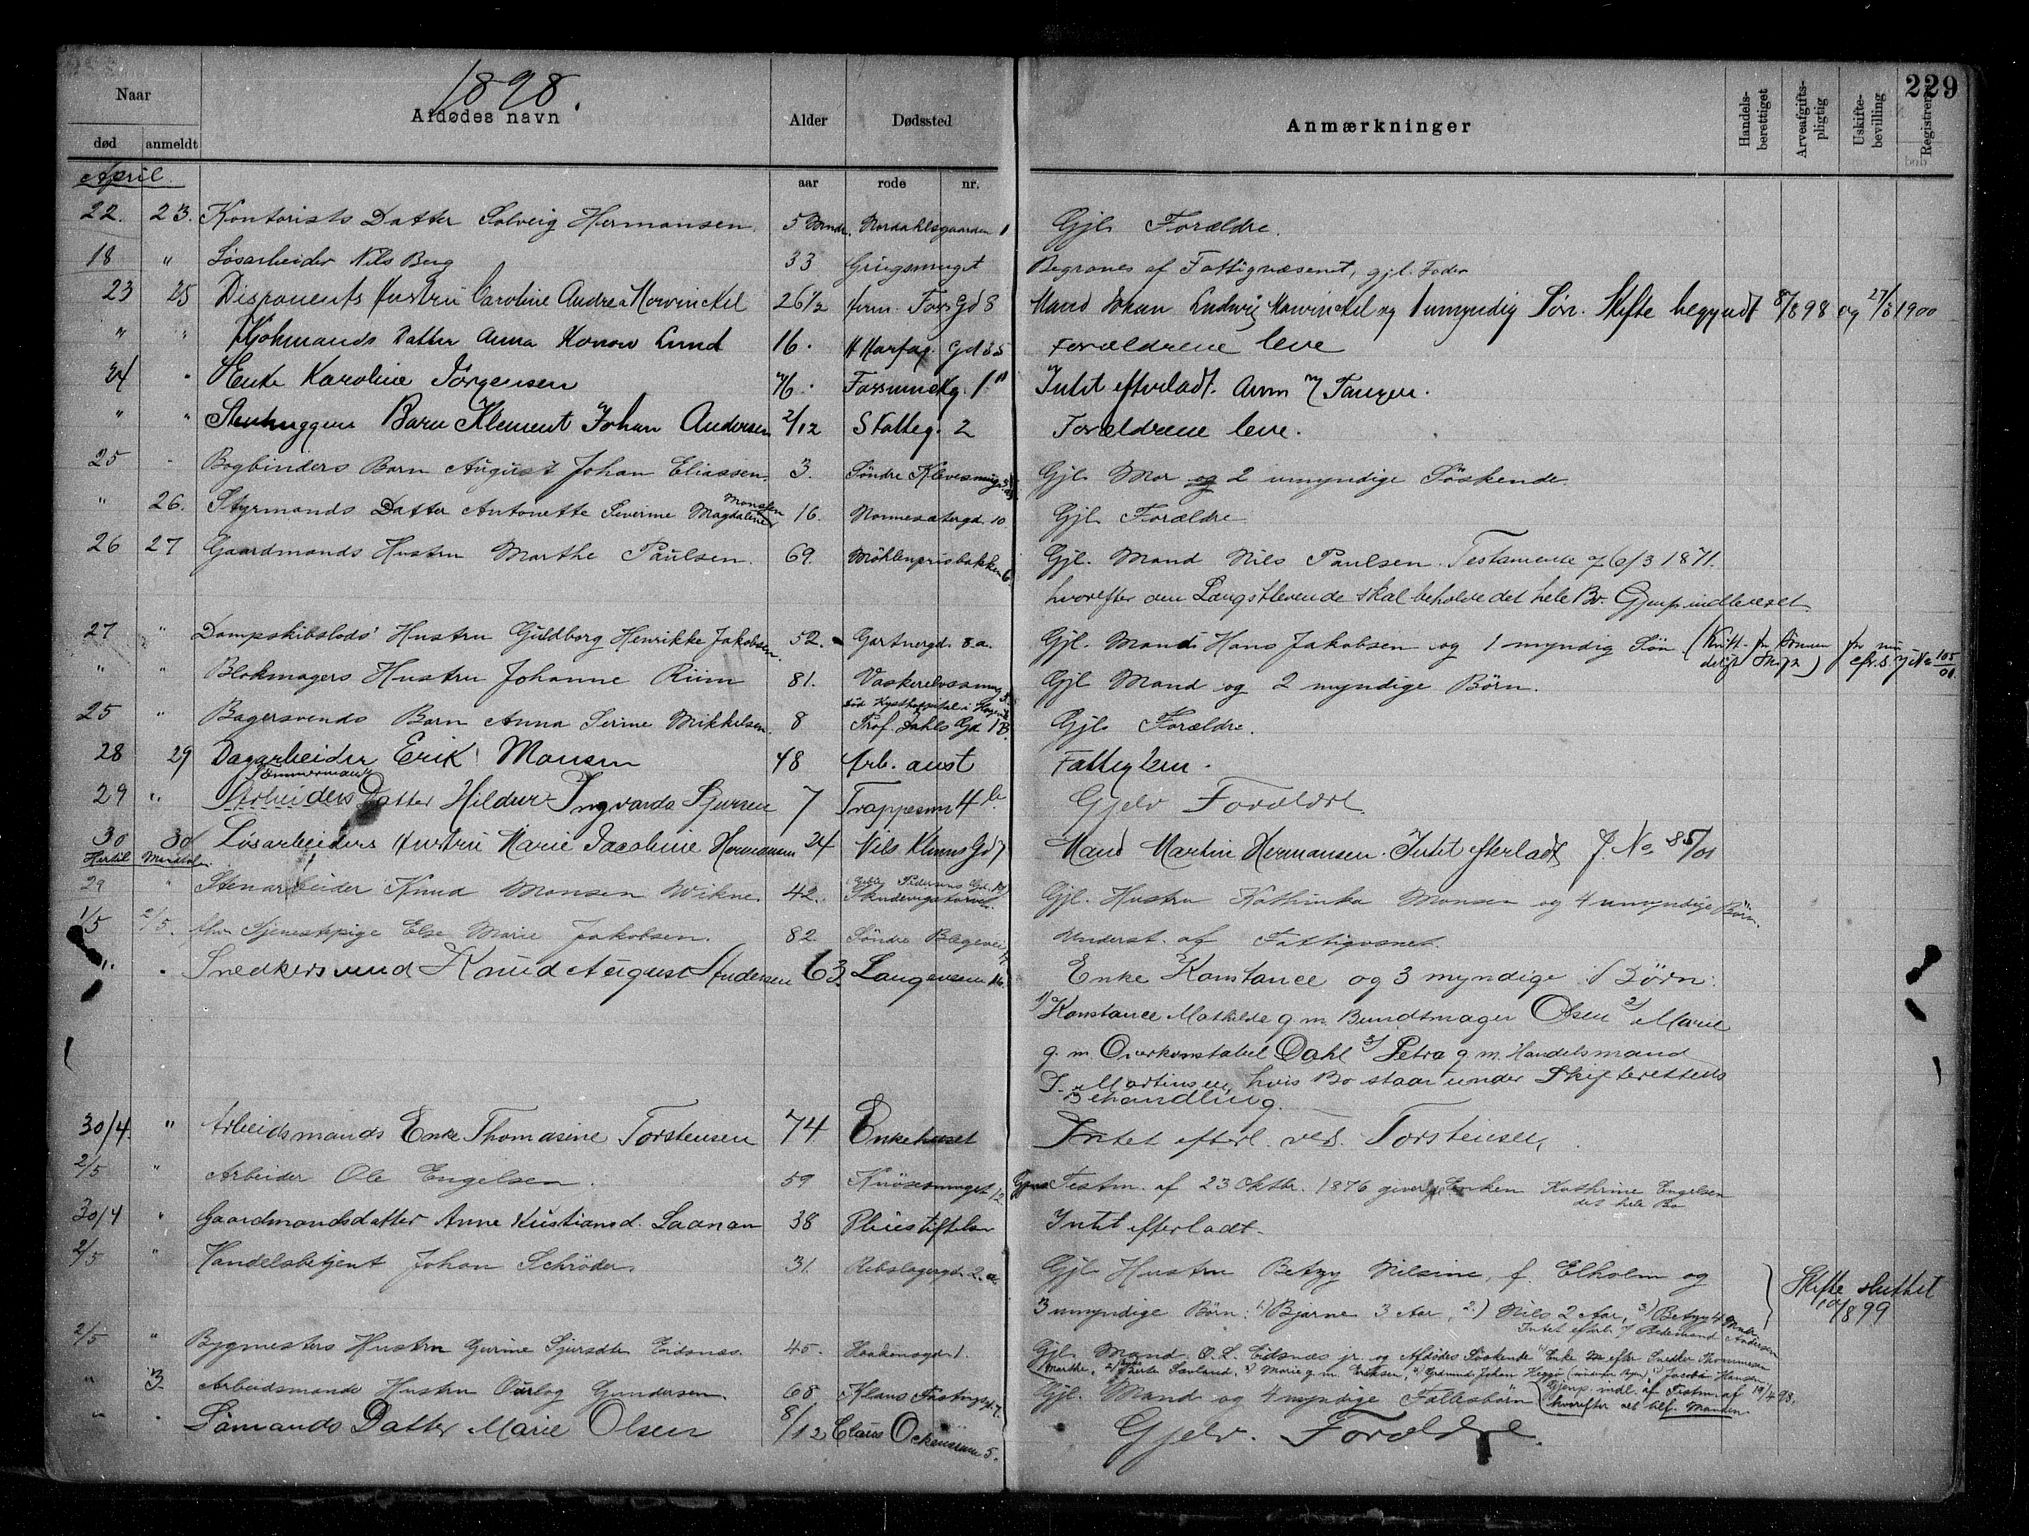 229
1898.
Naar
Afdødes navn
Alder
Dødssted
Anmærkninger
Handels-berettiget
Arveafgifts-pligtig
Uskifte-bevilling
Registreret
død anmeldt
aar rode nr.
April
22. 23. Kontorists Datter Solveig Hermansen. 5 Mndr. Nordahlsgaarden 1 Gjl. Forældre.
18 " Løsarbeider Nils Berg 33 Grugsmuget Begraves af Fattigvæsenet, gjl. Fader
23 25 Disponents Hustru Caroline Andrea Mowinckel 26 1/2 Gd 8 Mand Johan Ludwig Mowinckel og 1 umyndig Søn. Skifte begyndt 8/8 98 og 27/8 1900
" " Kjøbmands Datter Anna Konow Lund 16. H Harfag. Gd 35 Forældrene leve
24 " Enke Karoline Jørgensen 76. 1 Intet efterladt. Anm v/ Tangen.
" " Stenhuggers Barn Klement Johan Andersen 2/12 S 2 Forældrene leve.
25 - Bogbinders Barn August Johan Eliassen. 3. Søndre Klevesmug Gjl. Mor og 2 umyndige Søskende.
" 26. Styrmands Datter Antonette Severine Magdalene Monsen 16. Nonnesætergd. 10. Gjl. Forældre
26 27 Gaardmands Hustru Marthe Paulsen. 69. Møhlenprisbakken 6. Gjl. Mand Nils Paulsen. Testamente af 6/3 1871.
hvorefter den Længstlevende skal beholde det hele Bo. Gjenp. indleveret
27 " Dampskibslods' Hustru Guldborg Henrikke Jakobsen. 52. Gartnergd. 8 a. Gjl. Mand Hans Jakobsen og 1 myndig Søn
" " Blokmagers Hustru Johanne Riim 81. Vaskerelvssmug Gjl. Mand og 2 myndige Børn.
25 " Bagersvends Barn Anna Serine Mikkelsen. 8 død Kysthospital i Hagevik Prof. Dahls Gd. 1 B. Gjl. Forældre.
28 29 Dagarbeider Erik Monsen 48 Arb. anst Fattiglem.
29 " Tømmermands Arbeiders Datter Hildur Ingvarda Sjursen 7 Trappesm 4 b. Gjelv Forældre
30 30 Løsarbeiders Hustru Marie Jacobine Hermansen 24 Nils Klims Gd 7 Mand Martin Hermansen. Intet efterladt J. No 85/01
Hertil Meddelt
29 " Stenarbeider Knud Monsen Wikne. 42. Skudevigstorvet Gjl. Hustru Kathinka Monsen og 4 umyndige Børn.
1/5 2/5. fhv. Tjenestepige Else Marie Jakobsen. 82. Søndre Blegevei Underst. af Fattigvæsnet.
" " Snedkersvend Knud August Andersen 63. Langeveien 16. Enke Konstance og 3 myndige Børn:
1) Konstance Mathilde g. m. Bundtmager Olsen 2) Marie
g. m. Overkonstabel Dahl 3) Petra g. m. Handelsmand
J. Martinsen, hvis Bo staar under Skifterettens
Behandling.
30/4. " Arbeidsmands Enke Thomasine Torstensen 74 Enkehuset Intet efterl. ved Torsteinsen,
2/5 " Arbeider Ole Engelsen. 59 Knøsesmuget 12 Gjens. Testm. af 23 Oktbr. 1876 giver Enken Kathrine Engelsen
det hele Bo
30/4 " Gaardmandsdatter Anne Kristiansd. Saanan 38 Pleiestiftelsen Intet efterladt.
2/5 " Handelsbetjent Johan Schrøder. 31. Rebslagergd. 2. a. Gjl. Hustru Betzy Nilsine, f. Elholm og
3 umyndige Børn: 1) Bjarne 3 Aar, 2.) Nils 2 Aar, 3) Betzy 4 Mdr.
Skifte sluttet 10/8 99
2/5 " Bygmesters Hustru Gurine Sjursdtr Eidsnæs. 45. Haakonsgd 1. Gjl. Mand O. S. Eidsnæs jr. og Afdødes Søskende
" 3. Arbeidsmands Hustru Gundersen. 68 Klaus Gjl. Mand og 4 myndige Fællesbørn (Gjenp. indl. af Testm. af 19/4 98, hvorefter alt tilf. Manden
" " Sømands Datter Marie Olsen 8/12 Claus Ockenssm 5. Gjelv. Forældre.